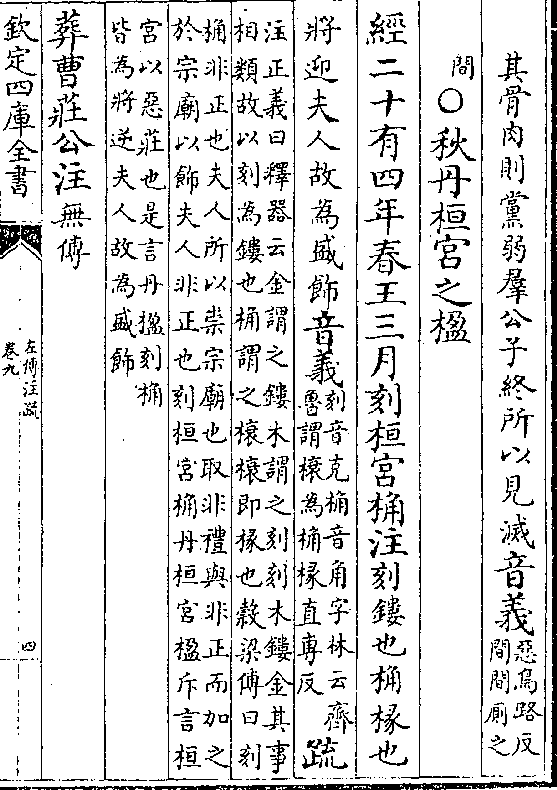 其骨肉則黨弱羣公子終所以見滅音義惡烏路反
間間厠之
間
○秋丹桓宮之楹
經二十有四年春王三月刻桓宮桷注刻鏤也桷椽也
將迎夫人故為盛飾音義刻音克桷音角字林云齊
魯謂榱為桷椽直專反疏
注正義曰釋器云金謂之鏤木謂之刻刻木鏤金其事
相類故以刻為鏤也桷謂之榱榱即椽也穀梁傳曰刻
桷非正也夫人所以崇宗廟也取非禮與非正而加之
於宗廟以飾夫人非正也刻桓宮桷丹桓宮楹斥言桓
宮以惡莊也是言丹楹刻桷
皆為將逆夫人故為盛飾
葬曹莊公注無傳
欽定四庫全書
左傳注疏
卷九
四